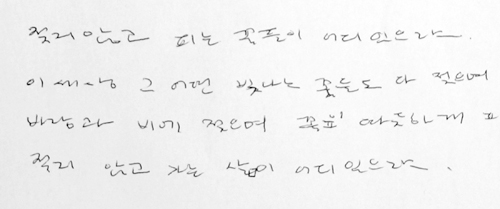 젖지 않고 피는 꽃들이 어디 있으랴.
이 세상 그 어떤 빛나는 꽃들도 다 젖으며
바람과 비에 젖으며 꽃잎 따뜻하게 피
젖지 않고 가는 삶이 어디 있으랴.